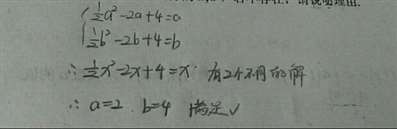 在，请说明理由.
{ ½a² - 2a + 4 = a
½b² - 2b + 4 = b
∴ ½x² - 2x + 4 = x 有2个不同的解
∴ a=2 b=4 满足√